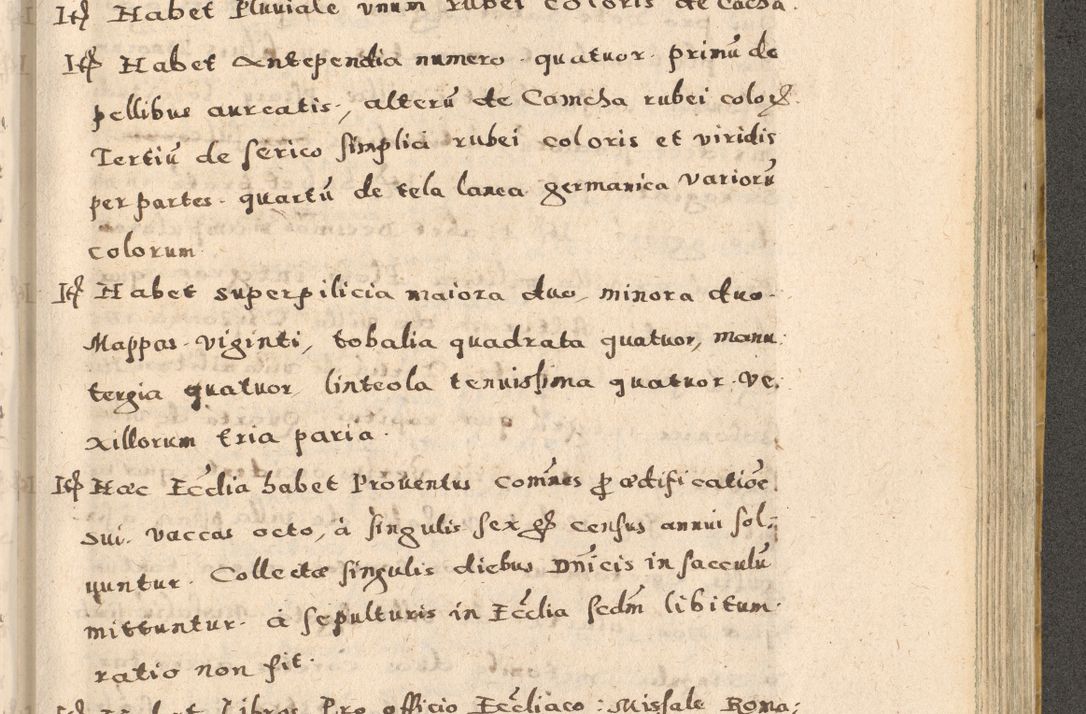 Itē Habet Pluuiale vnum rubei coloris de Cacha.
Itē Habet Antependia numero quatuor. primū de
pellibus aureatis, alterū de Camcha rubei coloꝝ.
Tertiū de serico simplici rubei coloris et viridis
per partes. quartū de tela lanea germanica variorū
colorum.
Itē Habet superpilicia maiora duo, minora duo.
Mappas viginti, tobalia quadrata quatuor, manu
tergia quatuor linteola tenuissima quatuor. Ve,
xillorum tria paria.
Itē Hæc Eccłia habet Prouentus com̃nes ꝓ ædificatiõe
sui. vaccas octo, à singulis sex gſ census annui sol,
uuntur. Collectæ singulis diebus Dn̄icis in sacculū
mittuntur. à sepulturis in Eccłia scdm̄ libitum.
ratio non fit.
Itē Habet Libros Pro officio Eccłiaco: Missale Roma: